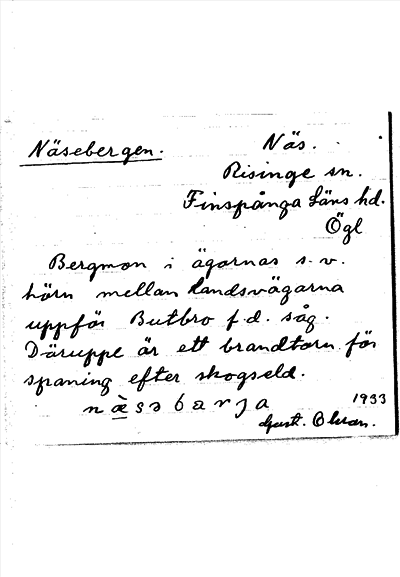 Näsebergen.
Näs.
Risinge sn.
Finspånga Läns hd.
Ögl
Bergmon i ägornas s.v.
hörn mellan landsvägarna
uppför Butbro f.d. såg.
Däruppe är ett brandtorn för
spaning efter skogseld.
næ̀sabarja
1933
Gust. Olson.